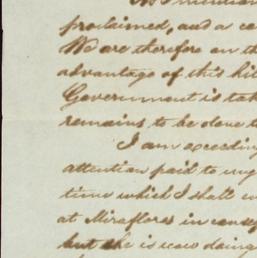 As I mention
proclaimed, and a ce
We are therefore on th
advantage of this hit
Government is tak
remains to be done t
I am exceeding
attention paid to my
time which I shall en
at Miraflores in conse
but she is now doing